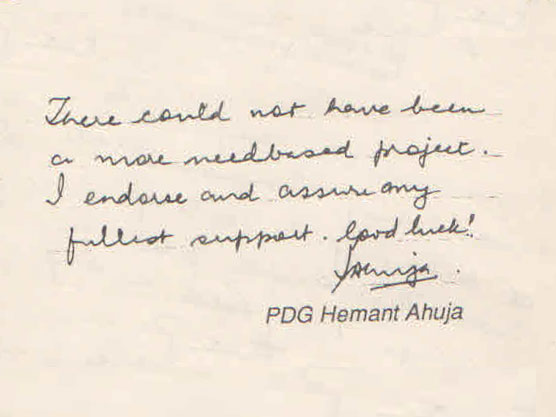 There could not have been
a more needbased project.
I endorse and assure my
fullest support. Good luck!
Ahuja.
PDG Hemant Ahuja